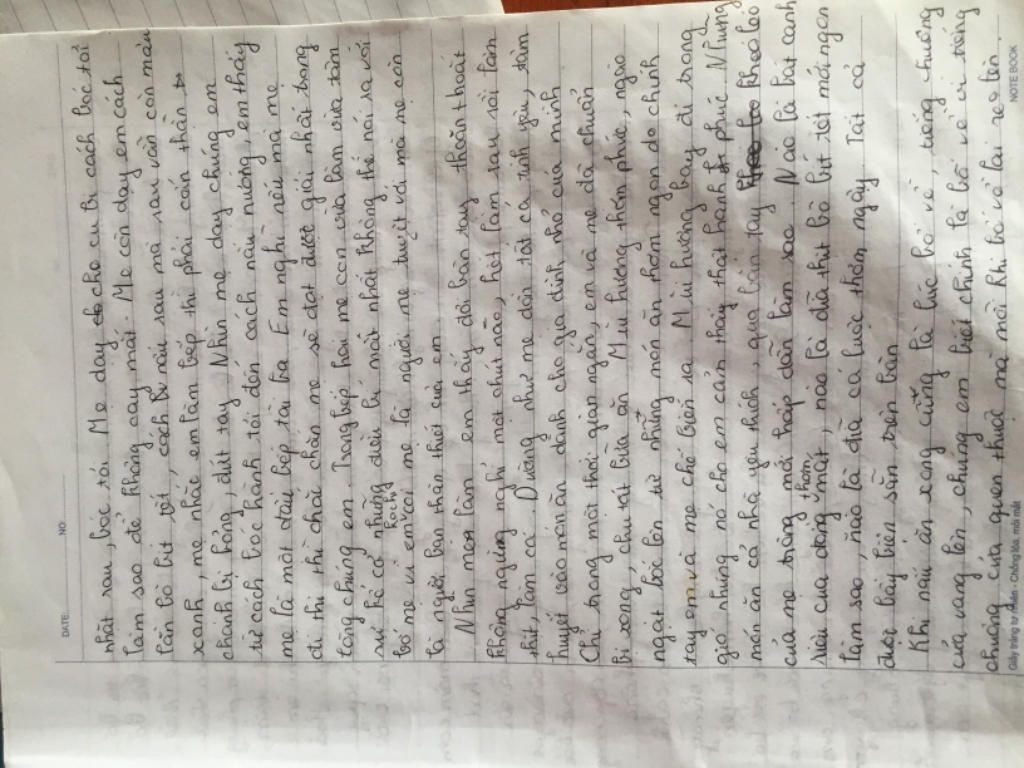 DATE: NO:
nhặt rau, bóc tỏi. Mẹ dạy cho cu Bi cách bóc tỏi
làm sao để không cay mắt. Mẹ còn dạy em cách
rán bò bít tết, cách nấu rau mà rau vẫn còn màu
xanh, mẹ nhắc em làm bếp thì phải cẩn thận
chánh bị bỏng, đứt tay. Nhìn mẹ dạy chúng em
từ cách bóc hành tới đến cách nấu nướng, em thấy
mẹ là một đầu bếp tài ba. Em nghĩ nếu mà mẹ
đi thi thì chắc chắn mẹ sẽ đạt được giải nhất trong
lòng chúng em. Trong bếp hai mẹ con vừa làm vừa tâm
sự kể cả những điều bí mật nhất không thể nói ra với
bố mẹ vì em coi mẹ là người mẹ tuyệt vời mà mẹ còn
là người bạn thân thiết của em.
Nhìn mẹ làm em thấy đôi bàn tay thoăn thoắt
không ngừng nghỉ một chút nào, hết làm rau rồi làm
thịt, làm cá. Dường như mẹ dồn tất cả tình yêu, tâm
huyết vào món ăn dành cho gia đình nhỏ của mình
Chỉ trong một thời gian ngắn, em và mẹ đã chuẩn
bị xong, chu tất bữa ăn. Mùi hương thơm phức, ngào
ngạt bốc lên từ những món ăn thơm ngon do chính
tay em và mẹ chế biến ra. Mùi hương bay đi trong
gió nhưng nó cho em cảm thấy thật hạnh phúc. Những
món ăn cả nhà yêu thích, qua bàn tay khéo léo
của mẹ trông mới hấp dẫn làm sao. Nào là bát canh
riêu cua đồng thơm mát, nào là đĩa thịt bò bít tết mới ngon
làm sao, nào là đĩa cá luộc thơm ngậy. Tất cả
được bày biện sẵn trên bàn.
Khi nấu ăn xong cũng là lúc bố về, tiếng chuông
cửa vang lên, chúng em biết chính là bố về vì tiếng
chuông cửa quen thuộc mà mỗi khi bố về lại reo lên.
Giấy trắng tự nhiên - Chống lóa, mỏi mắt
NOTE BOOK